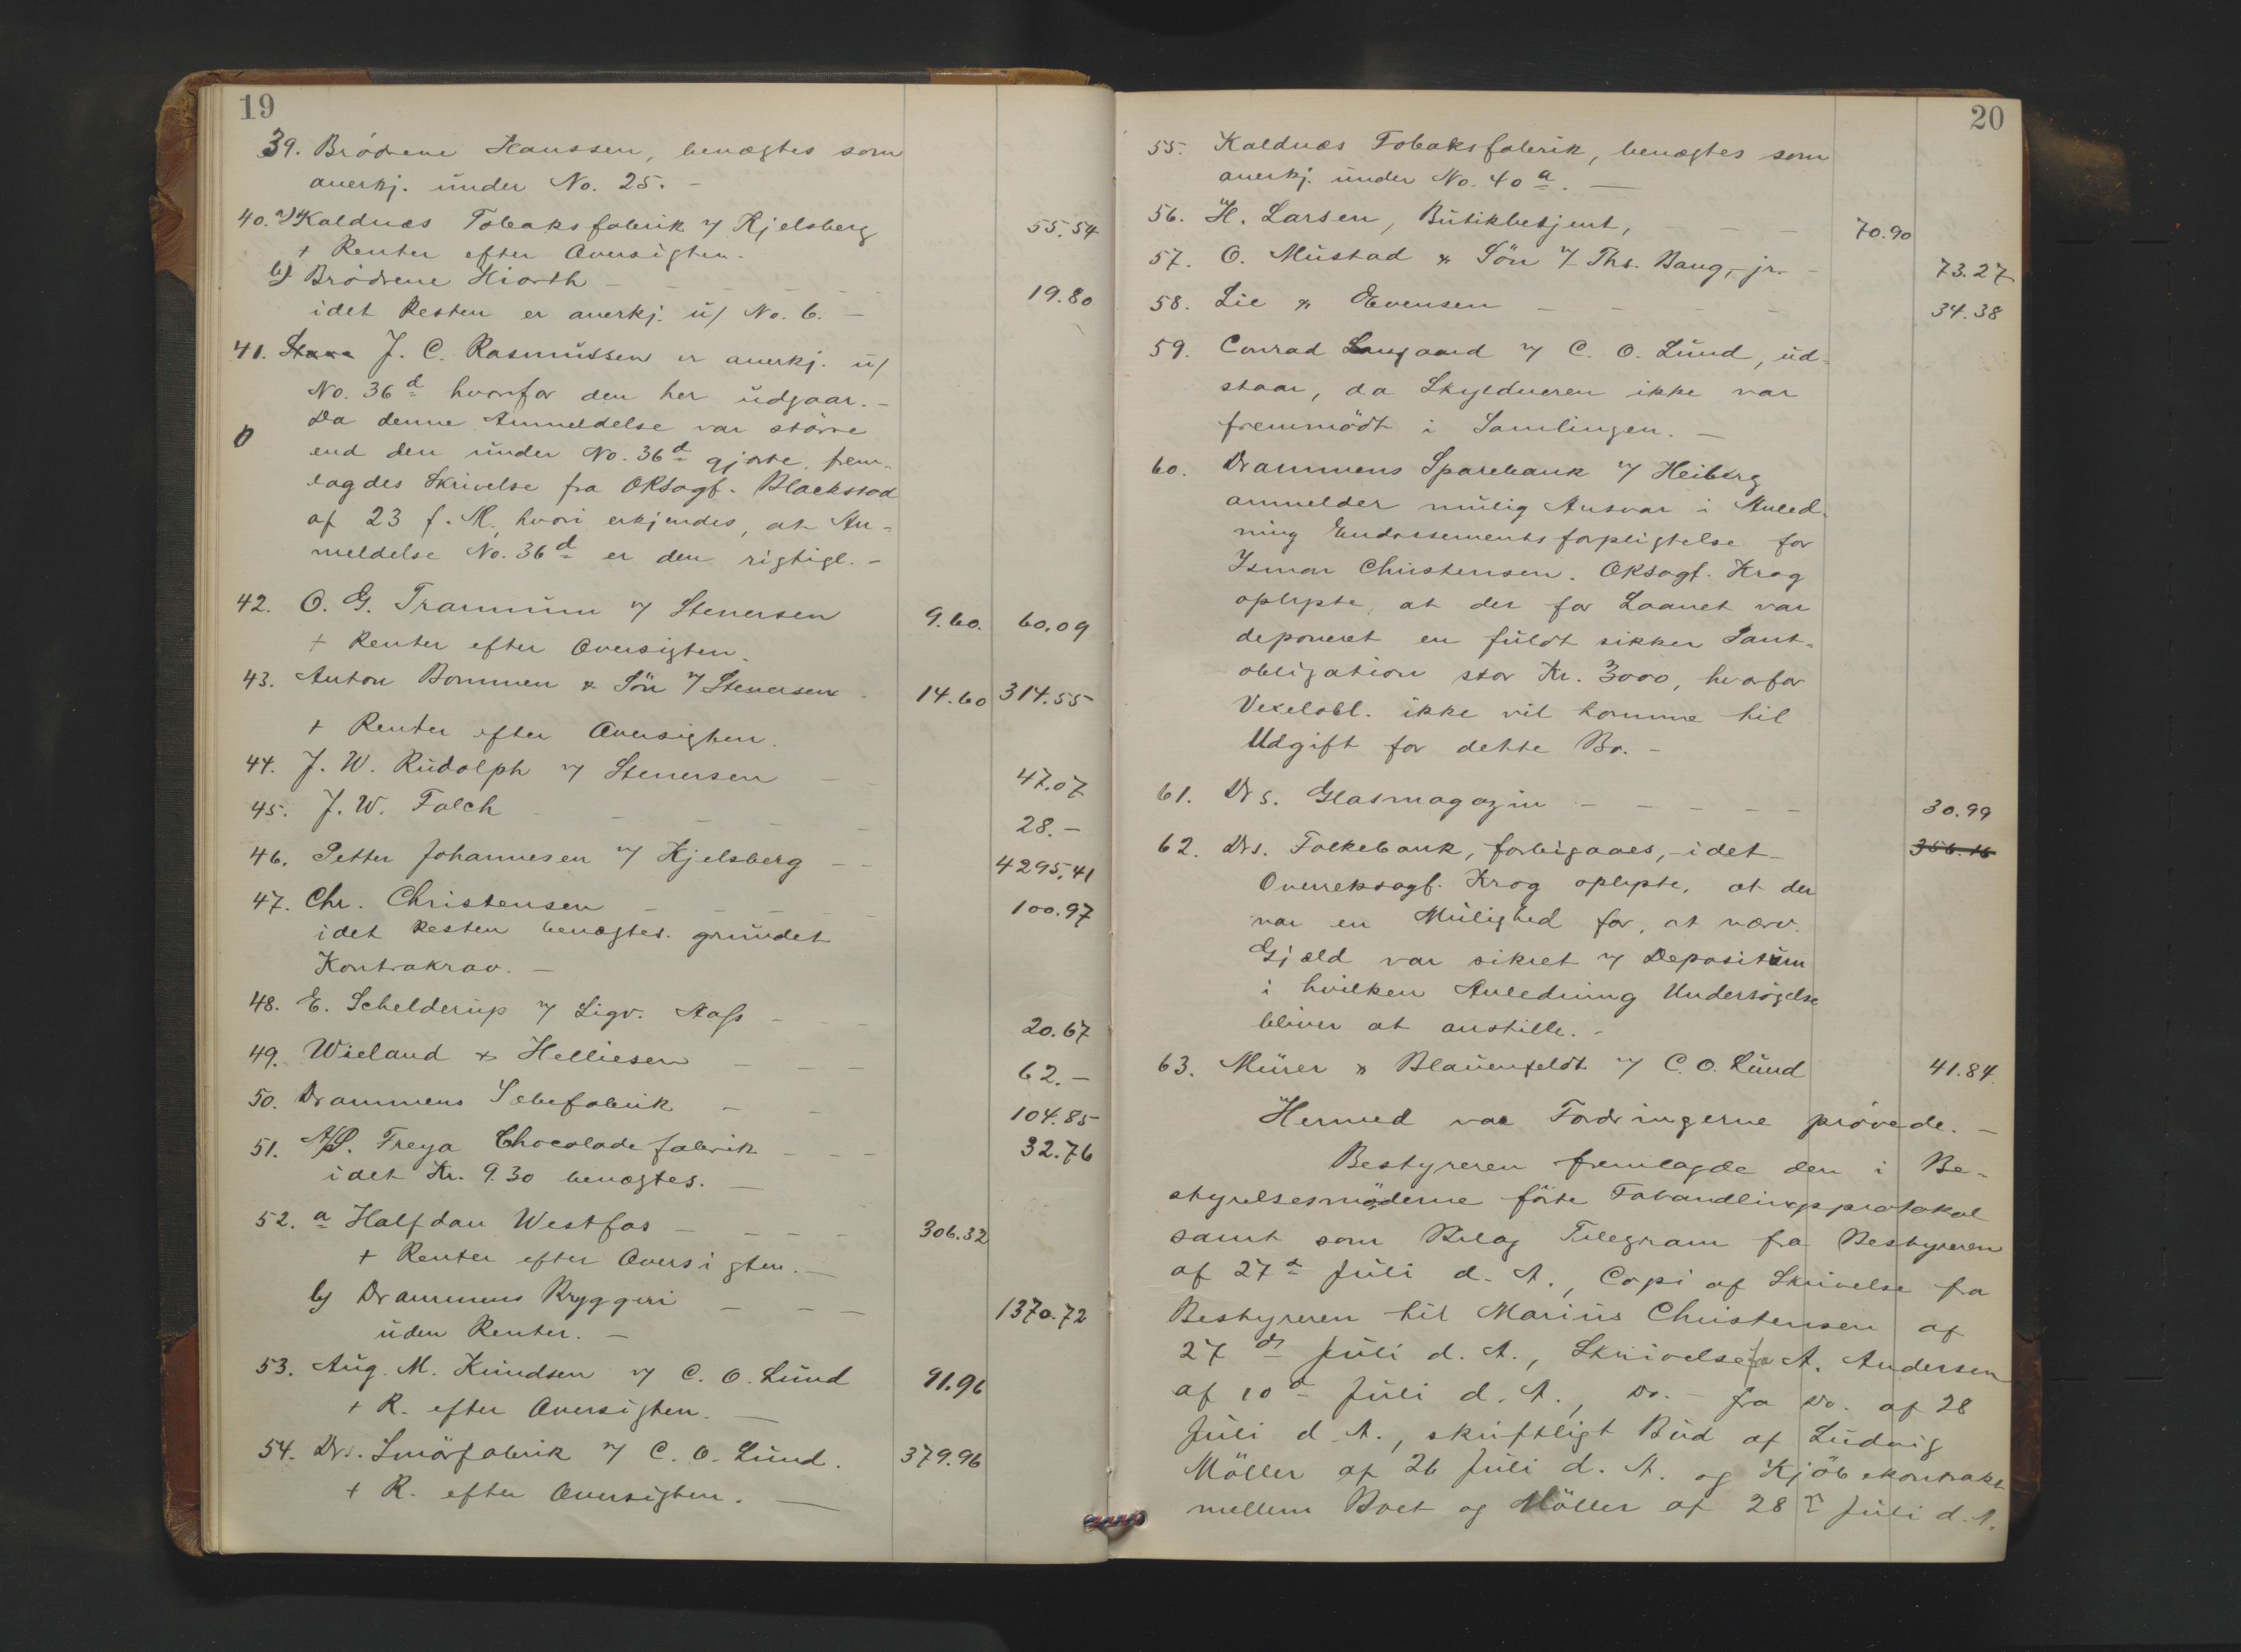 19
39. Brödrene Hanssen, benægtes som
anerkj. under No. 25. -
40. a) Kaldnæs Tobaksfabrik v/ Kjelsberg 55.54
+ Renter efter Oversigten.
b) Brödrene Hiorth - - - - - 19.80
idet Resten er anerkj. u/ No. 6. -
41. J. C. Rasmussen er anerkj. u/
No. 36d hvorfor den her udgaar. -
Da denne Anmeldelse var större
end den under No. 36d gjorte, frem-
lagdes Skrivelse fra ORSagf. Blackstad
af 23 f. M. hvori erkjendes, at An-
meldelse No. 36d er den rigtige. -
42. O. G. Trammum v/ Stenersen 9.60. 60.09
+ Renter efter Oversigten.
43. Anton Bommen & Sön v/ Stenersen - 14.60 314.55
+ Renter efter Oversigten.
44. J. W. Rudolph v/ Stenersen - - 47.07
45. J. W. Falch - - - - - 28.-
46. Petter Johannesen v/ Kjelsberg - - 4295,41
47. Chr. Christensen - - - - - 100.97
idet Resten benægtes grundet
Kontrakrav. -
48. E. Schelderup v/ Sigv. Aass - - - 20.67
49. Wieland & Helliesen - - - 62.-
50. Drammens Sæbefabrik - - 104.85
51. A/S. Freya Chocoladefabrik - - - 32.76
idet Kr. 9.30 benægtes. -
52. a Halfdan Westfas - - - - 306.32
+ Renter efter Oversigten. -
b) Drammens Bryggeri - - - 1370.72
uden Renter. -
53. Aug. M. Knudsen v/ C. O. Lund 91.96
+ R. efter Oversigten. -
54. Drs. Smörfabrik v/ C. O. Lund. 379.96
+ R. efter Oversigten. -
20
55. Kaldnæs Tobaksfabrik, benægtes som
anerkj. under No. 40a. -
56. H. Larsen, Butikbetjent, - - - 70.90
57. O. Mustad & Sön v/ Ths. Bang, jr. - 73.27
58. Lie & Evensen - - - - 34.38
59. Conrad Langaard v/ C. O. Lund, ud-
staar, da Skyldneren ikke var
fremmödt i Samlingen. -
60. Drammens Sparebank v/ Heiberg
anmelder mulig Ansvar i Anled-
ning Endossementsforpligtelse for
Ismar Christensen. ORSagf. Krag
oplyste, at der for Laanet var
deponeret en fuldt sikker Pant-
obligation stor Kr. 3000, hvorfor
Vexelobl. ikke vil komme til
Udgift for dette Bo. -
61. Drs. Glasmagazin - - - - - 30.99
62. Drs. Folkebank, forbigaaes, - idet 356.16
Overretssagf. Krag oplyste, at der
var en Mulighed for, at nærv.
Gjæld var sikret v/ Depositum
i hvilken Anledning Undersögelse
bliver at anstille. -
63. Mürer & Blauenfeldt v/ C. O. Lund 41.84.
Hermed var Fordringerne prövede. -
Bestyreren fremlagde den i Be-
styrelsesmöderne förte Forhandlingsprotokol
samt som Bilag Telegram fra Bestyreren
af 27de Juli d. A., Copi af Skrivelse fra
Bestyreren til Marius Christensen af
27de Juli d. A., Skrivelse fra A. Andersen
af 10de Juli d. A., Do. - fra Do. af 28
Juli d. A., skriftligt Bud af Ludvig
Möller af 26 Juli d. A. og Kjöbekontrakt
mellem Boet og Möller af 28de Juli d. A.